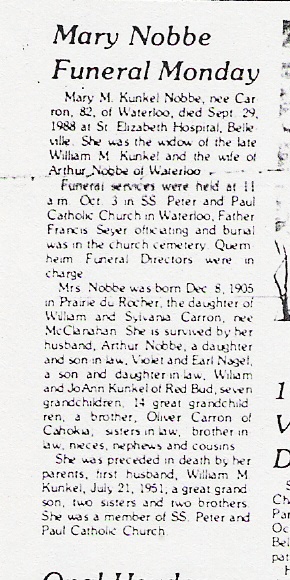 Mary Nobbe
Funeral Monday
Mary M. Kunkel Nobbe, nee Car
ron, 82, of Waterloo, died Sept. 29,
1988 at St. Elizabeth Hospital, Belle
ville. She was the widow of the late
William M Kunkel and the wife of
Arthur Nobbe of Waterloo
Funeral services were held at 11
a m Oct. 3 in SS Peter and Paul
Catholic Church in Waterloo, Father
Francis Seyer officiating and burial
was in the church cemetery Quern
heim Funeral Directors were in
charge
Mrs Nobbe was born Dec 8, 1905
in Prairie du Rocher, the daughter of
William and Sylvania Carron, nee
McClanahan She is survived by her
husband, Arthur Nobbe, a daughter
and son in law, Violet and Earl Nagel,
a son and daughter in law, William
and JoAnn Kunkel of Red Bud, seven
grandchildren, 14 great grandchild
ren, a brother, Oliver Carron of
Cahokia, sisters in law, brother in
law, nieces, nephews and cousins
She was preceded in death by her
parents, first husband, William M
Kunkel, July 21, 1951, a great grand
son, two sisters and two brothers
She was a member of SS. Peter and
Paul Catholic Church